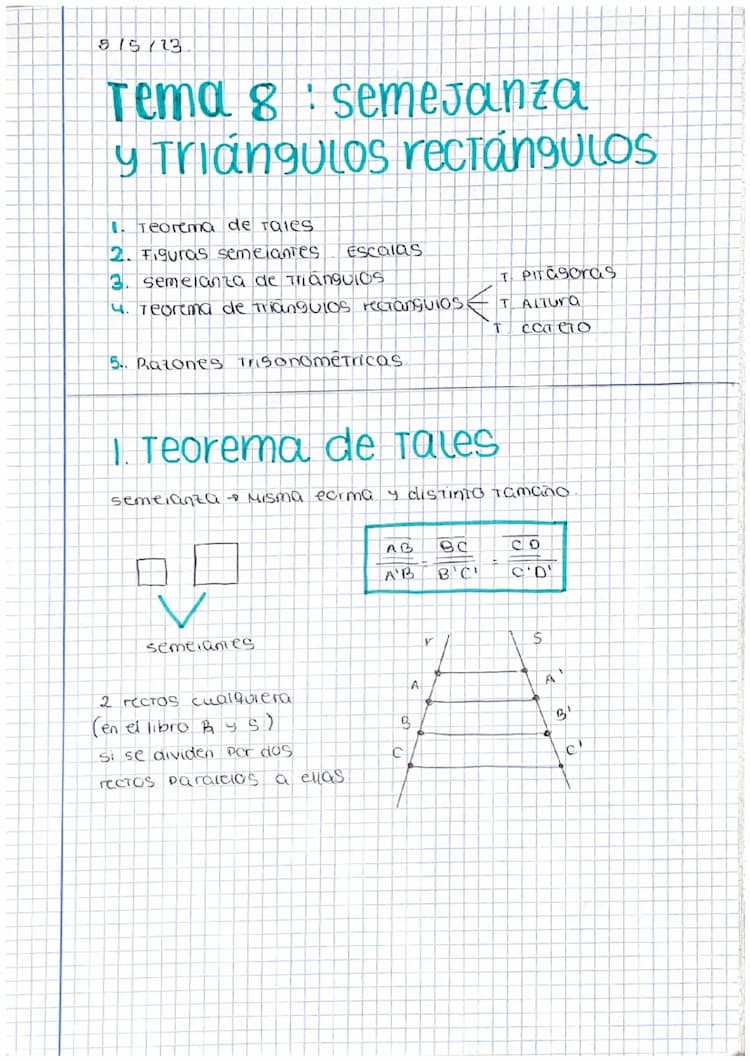 8/5/23.
Tema 8 : semejanza
y Triángulos rectángulos
1. Teorema de Tales
2. Figuras semejantes Escalas
3. semejanza de Triángulos
4. Teorema de Triángulos rectángulos
T. Pitágoras
T Altura
T cateto
5.. Razones Trigonométricas
1. Teorema de Tales
semejanza → Misma forma y distinto Tamaño.
AB BC CD
= =
A'B B'C' C'D'
semejantes
r S
A A'
B B'
C C'
2 rectos cualquiera
(en el libro R y S)
si se dividen por dos
rectos paralelos a ellas